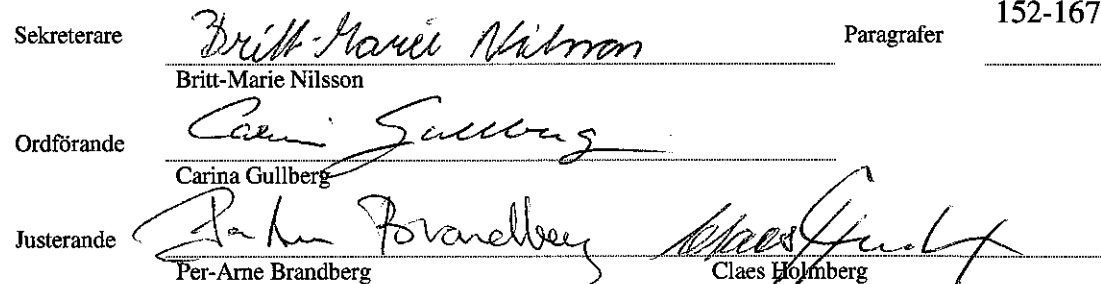 Sekreterare Britt-Marie Nilsson Paragrafer 152-167
Britt-Marie Nilsson
Ordförande Carina Gullberg
Carina Gullberg
Justerande Per-Arne Brandberg Claes Holmberg
Per-Arne Brandberg Claes Holmberg